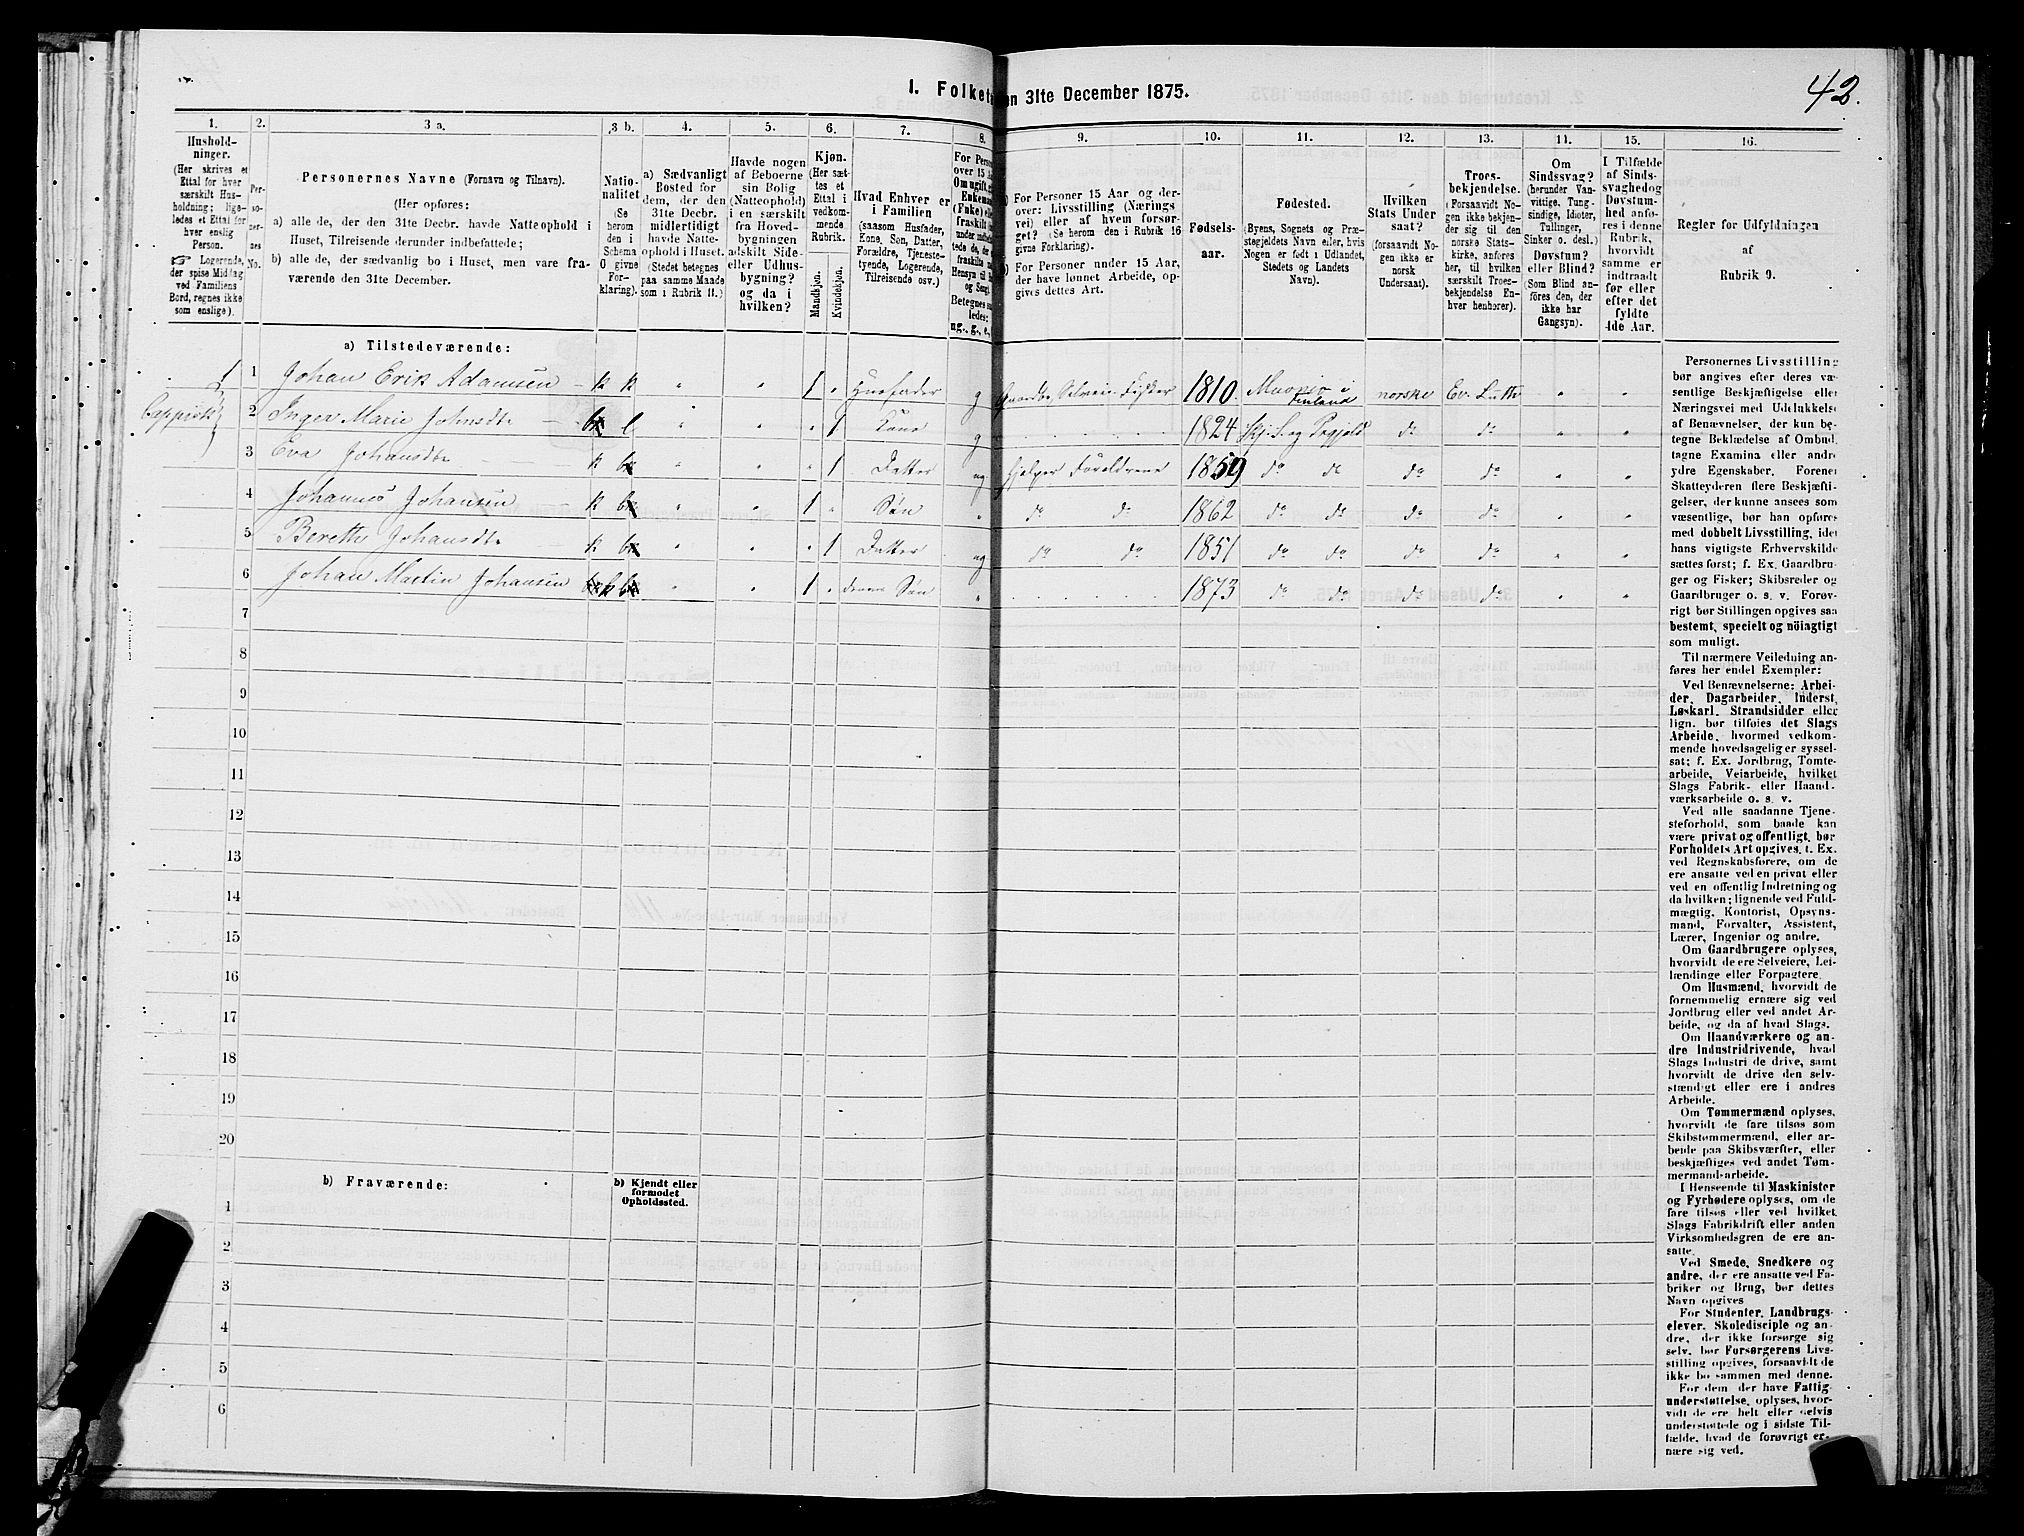 42.
1. Folket
on 31te December 1875.
1. 2. 3 a. 3 b. 4. 5. 6. 7. 8. 9. 10. 11. 12. 13. 14. 15. 16.
Hushold-
ninger.
(Her skrives et
Ettal for hver
særskilt Hus-
holdning; lige-
ledes et Ettal for
hver enslig
Person.
☞ Logerende,
der spise Middag
ved Familiens
Bord, regnes ikke
som enslige).
Per-
so-
ner-
nes
No.
Personernes Navne (Fornavn og Tilnavn).
(Her opføres:
a) alle de, der den 31te Decbr. havde Natteophold i
Huset, Tilreisende derunder indbefattede;
b) alle de, der sædvanlig bo i Huset, men vare fra-
værende den 31te December.
Natio-
nalitet
(Se
herom
den i
Schema
O givne
For-
klaring).
a) Sædvanligt
Bosted for
dem, der den
31te Decbr.
midlertidigt
havde Natte-
ophold i Huset.
(Stedet betegnes
paa samme Maade
som i Rubrik 11.)
Havde nogen
af Beboerne
sin Bolig
(Natteophold)
i en særskilt
fra Hoved-
bygningen
adskilt Side-
eller Udhus-
bygning?
og da i
hvilken?
Kjøn.
(Her sæt-
tes et
Ettal i
vedkom-
mende
Rubrik.
Mandkjøn.
Kvindekjøn.
Hvad Enhver er
i Familien
(saasom Husfader,
Kone, Søn, Datter,
Forældre, Tjeneste-
tyende, Logerende,
Tilreisende osv.)
For Person
over 15 Aar
Om ugift, g
Enkemand
(Enke) elle
fraskilt
Betegnes saa
ledes:
ug., g., e.,
For Personer 15 Aar og der-
over: Livsstilling (Nærings
vei) eller af hvem forsør-
get? (Se herom den i Rubrik 16
givne Forklaring).
For Personer under 15 Aar,
der have lønnet Arbeide, op-
gives dettes Art.
Fødsels-
aar.
Fødested.
(Byens, Sognets og Præ-
stegjeldets Navn eller, hvis
Nogen er født i Udlandet,
Stedets og Landets
Navn).
Hvilken
Stats Under
saat?
(forsaavidt No-
gen ikke er
norsk
Undersaat).
Troes-
bekjendelse.
(Forsaavidt No-
gen ikke bekjen-
der sig til den
norske Stats-
kirke, anføres
her, til hvilken
særskilt Troes-
bekjendelse En-
hver henhører).
Om
Sindssvag?
(herunder Van-
vittige, Tung-
sindige, Idioter,
Tullinger,
Sinker o. desl.)
Døvstum?
eller Blind?
(Som Blind an-
føres den, der
ikke har
Gangsyn).
I Tilfælde
af Sinds-
svaghed og
Døvstum-
hed anfø-
res i denne
Rubrik,
hvorvidt
samme er
indtraadt
før eller
efter det
fyldte
4de Aar.
Regler for Udfyldningen
af
Rubrik 9.
a) Tilstedeværende:
1 1 Johan Erik Adamsen k k " " 1 " Husfader g Gaardbr. Selveier Fisker 1810. Muonio i Finland norske Ev. Luth " "
Cappisk 2 Inger Marie Johnsdtr l " " " 1 Kone g 1824 Skj. S. og Prgjeld do do " "
3 Eva Johansdtr k " " " 1 Datter ug hjelper Foreldrene 1859 do do do do " "
4 Johannes Johansen k " " 1 " Søn " do do 1862 do do do do " "
5 Bereth Johansdtr k " " " 1 Datter ug do do 1851 do do do do " "
6 Johan Martin Johansen " " 1 " dennes Søn " 1873 do do do do " "
7
8
9
10
11
12
13
14
15
16
17
18
19
20
b) Fraværende:
b) Kjendt eller
formodet
Opholdssted.
1
2
3
4
5
6
Personernes Livsstilling
bør angives efter deres væ-
sentlige Beskjæftigelse eller
Næringsvei med Udelukkelse
af Benævnelser, der kun be-
tegne Beklædelse af Ombud,
tagne Examina eller andre
ydre Egenskaber. Forener
Skatteyderen flere Beskjæfti-
gelser, der kunne ansees som
væsentlige, bør han opføres
med dobbelt Livsstilling, idet
hans vigtigste Erhvervskilde
sættes først; f. Ex. Gaardbru-
ger og Fisker; Skibsreder og
Gaardbruger o. s. v. Forøv-
rigt bør Stillingen opgives saa
bestemt, specielt og nøiagtigt
som muligt.
Til nærmere Veiledning an-
føres her endel Exempler:
Ved Benævnelserne: Arbei-
der, Dagarbeider, Inderst,
Løskarl, Strandsidder eller
lign. bør tilføies det Slags
Arbeide, hvormed vedkom-
mende hovedsagelig er syssel-
sat; f. Ex. Jordbrug, Tomte-
arbeide, Veiarbeide, hvilket
Slags Fabrik- eller Haand-
værksarbeide o. s. v.
Ved alle saadanne Tjene-
steforhold, som baade kan
være privat og offentligt, bør
Forholdets Art opgives, f. Ex.
ved Regnskabsførere, om de
ere ansatte ved en privat eller
ved en offentlig Indretning og
da hvilken; lignende ved Fuld-
mægtig, Kontorist, Opsyns-
mand, Forvalter, Assistent,
Lærer, Ingeniør og andre.
Om Gaardbrugere oplyses,
hvorvidt de ere Selveiere, Lei-
lændinge eller Forpagtere.
Om Husmænd, hvorvidt de
fornemmelig ernære sig ved
Jordbrug eller ved andet Ar-
beide, og da af hvad Slags.
Om Haandværkere og an-
dre Industridrivende, hvad
Slags Industri de drive, samt
hvorvidt de drive den selv-
stændigt eller ere i andres
Arbeide.
Om Tømmermænd oplyses,
hvorvidt de fare tilsøs som
Skibstømmermænd, eller ar-
beide paa Skibsværfter, eller
beskjæftiges ved andet Tøm-
mermandarbeide.
I Henseende til Maskinister
og Fyrbødere oplyses, om de
fare tilsøs eller ved hvilket
Slags Fabrikdrift eller anden
Virksomhedsgren de ere an-
satte.
Ved Smede, Snedkere og
andre, der ere ansatte ved Fa-
briker og Brug, bør dettes
Navn opgives
For Studenter, Landbrugs-
elever, Skoledisciple og an-
dre, der ikke forsørge sig
selv, bør Forsørgerens Livs-
stilling opgives, forsaavidt de
ikke bo sammen med denne.
For dem, der have Fattig-
understøttelse, oplyses, hvor-
vidt de ere helt eller delvis
understøttede og i sidste Til-
fælde, hvad de forøvrigt er-
nære sig ved.